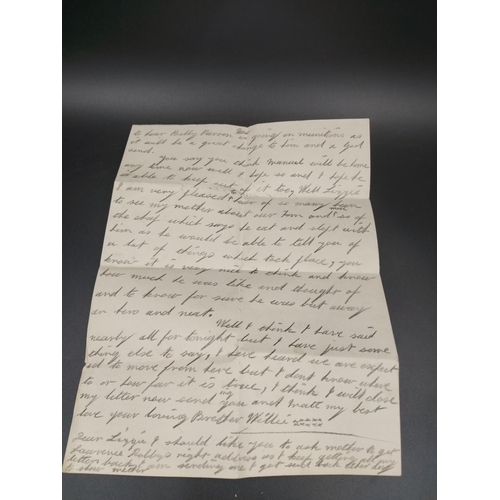 to hear Kelly Parsons going on munitions as
it will be a great change to him and a god
send.
You say you think Manuel will be home
any time now well I hope so and I hope he
is able to keep out of it too, Well Lizzie
I am very pleased to hear of so many
to see my mother about our Tom and
the chap which says he eat and slept with
him as he would be able to tell you of
a lot of things which took place, you
know it is very nice to think and know
how much he was like and thought of
and to know for sure he was put away
nice and neat.
Well I think I have said
nearly all for tonight but I have just some
thing else to say, I have heard we are expect
ed to move from here but I dont know where
to or how far it is true, I think I will close
my letter now send my you and Matt my best
love your loving Brother Willie xxxx
Dear Lizzie I should like you to ask mother to get
Lawrence right address as I keep getting all my
letters back I am sending me I got sent back